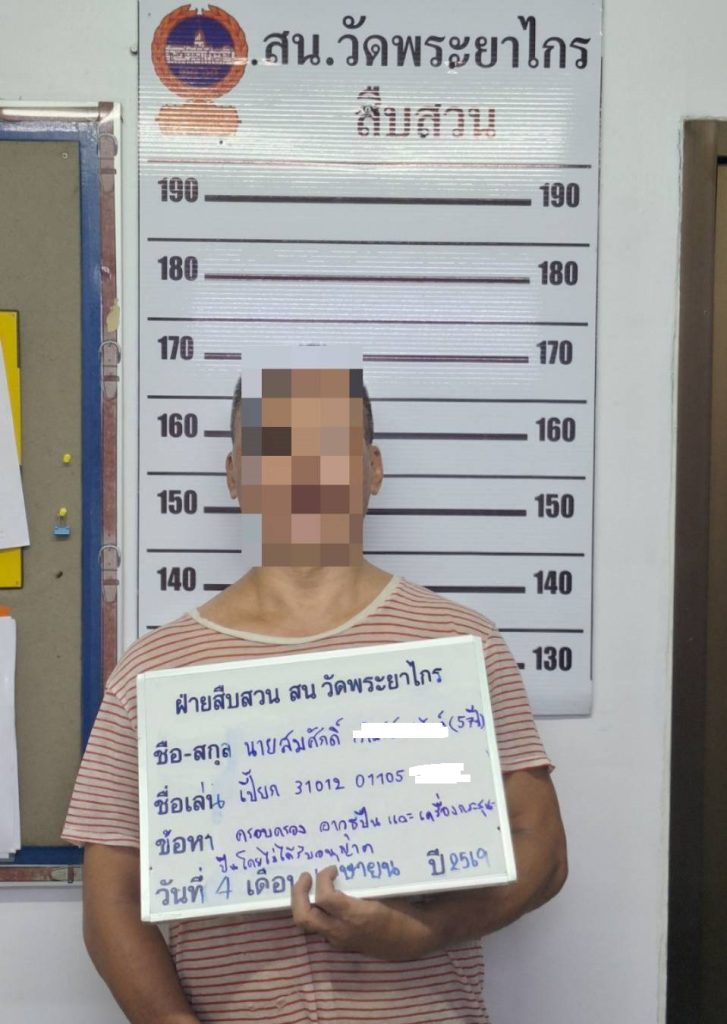 .สน.วัดพระยาไกร
สืบสวน
190 190
180 180
170 170
160 160
150 150
140 140
130
ฝ่ายสืบสวน สน วัดพระยาไกร
ชื่อ-สกุล นายสมศักดิ์ (57ปี)
ชื่อเล่น เปี๊ยก 31012 01105
ข้อหา ครอบครอง อาวุธปืน และ เครื่องกระสุน
ปืนโดยไม่ได้รับอนุญาต
วันที่ 4 เดือน ปี 2569